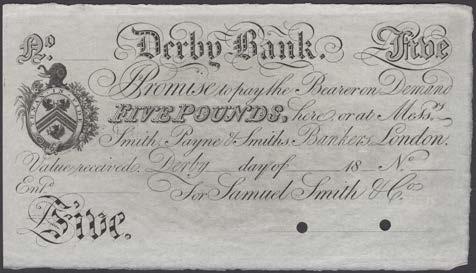 No. Derby Bank. Five
I Promise to pay the Bearer on Demand
FIVE POUNDS, here, or at Messrs
Smith, Payne & Smiths, Bankers, London.
Value received. Derby day of 18 No
Entd
For Samuel Smith & Co
Five.